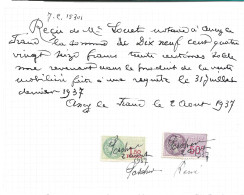 Reçu de Me Touet notaire à Ancy le
Franc la somme de Dix neuf cent quatre
vingt seize francs trente centimes solde
me revenant dans le produit de la vente
mobilière faite à ma requête le 31 juillet
dernier 1937
Ancy le Franc le 2 Août 1937